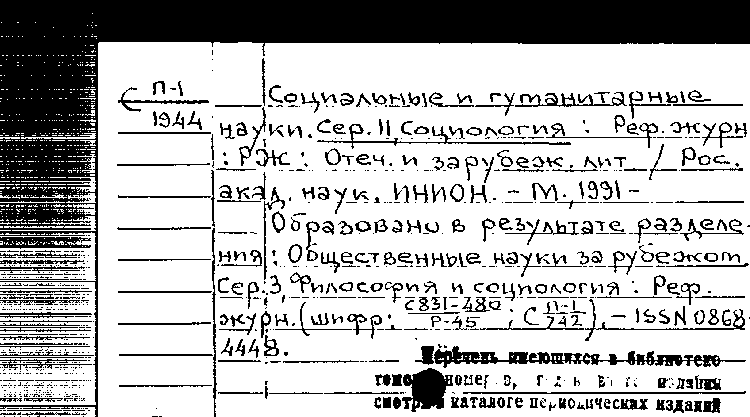 С П-1
1944
Социальные и гуманитарные
науки. Сер. 11, Социология : Реф. журн
: РЖ : Отеч. и зарубеж. лит / Рос.
акад. наук. ИНИОН. - М., 1991 -
Образовано в результате разделе-
ния : Общественные науки за рубежом.
Сер. 3, Философия и социология : Реф.
журн. (шифр: С831-480/Р-45 ; С П-1/742). - ISSN 0868-
4448.
Перечень имеющихся в библиотеке
томов, номеров,
смотри в каталоге периодических изданий